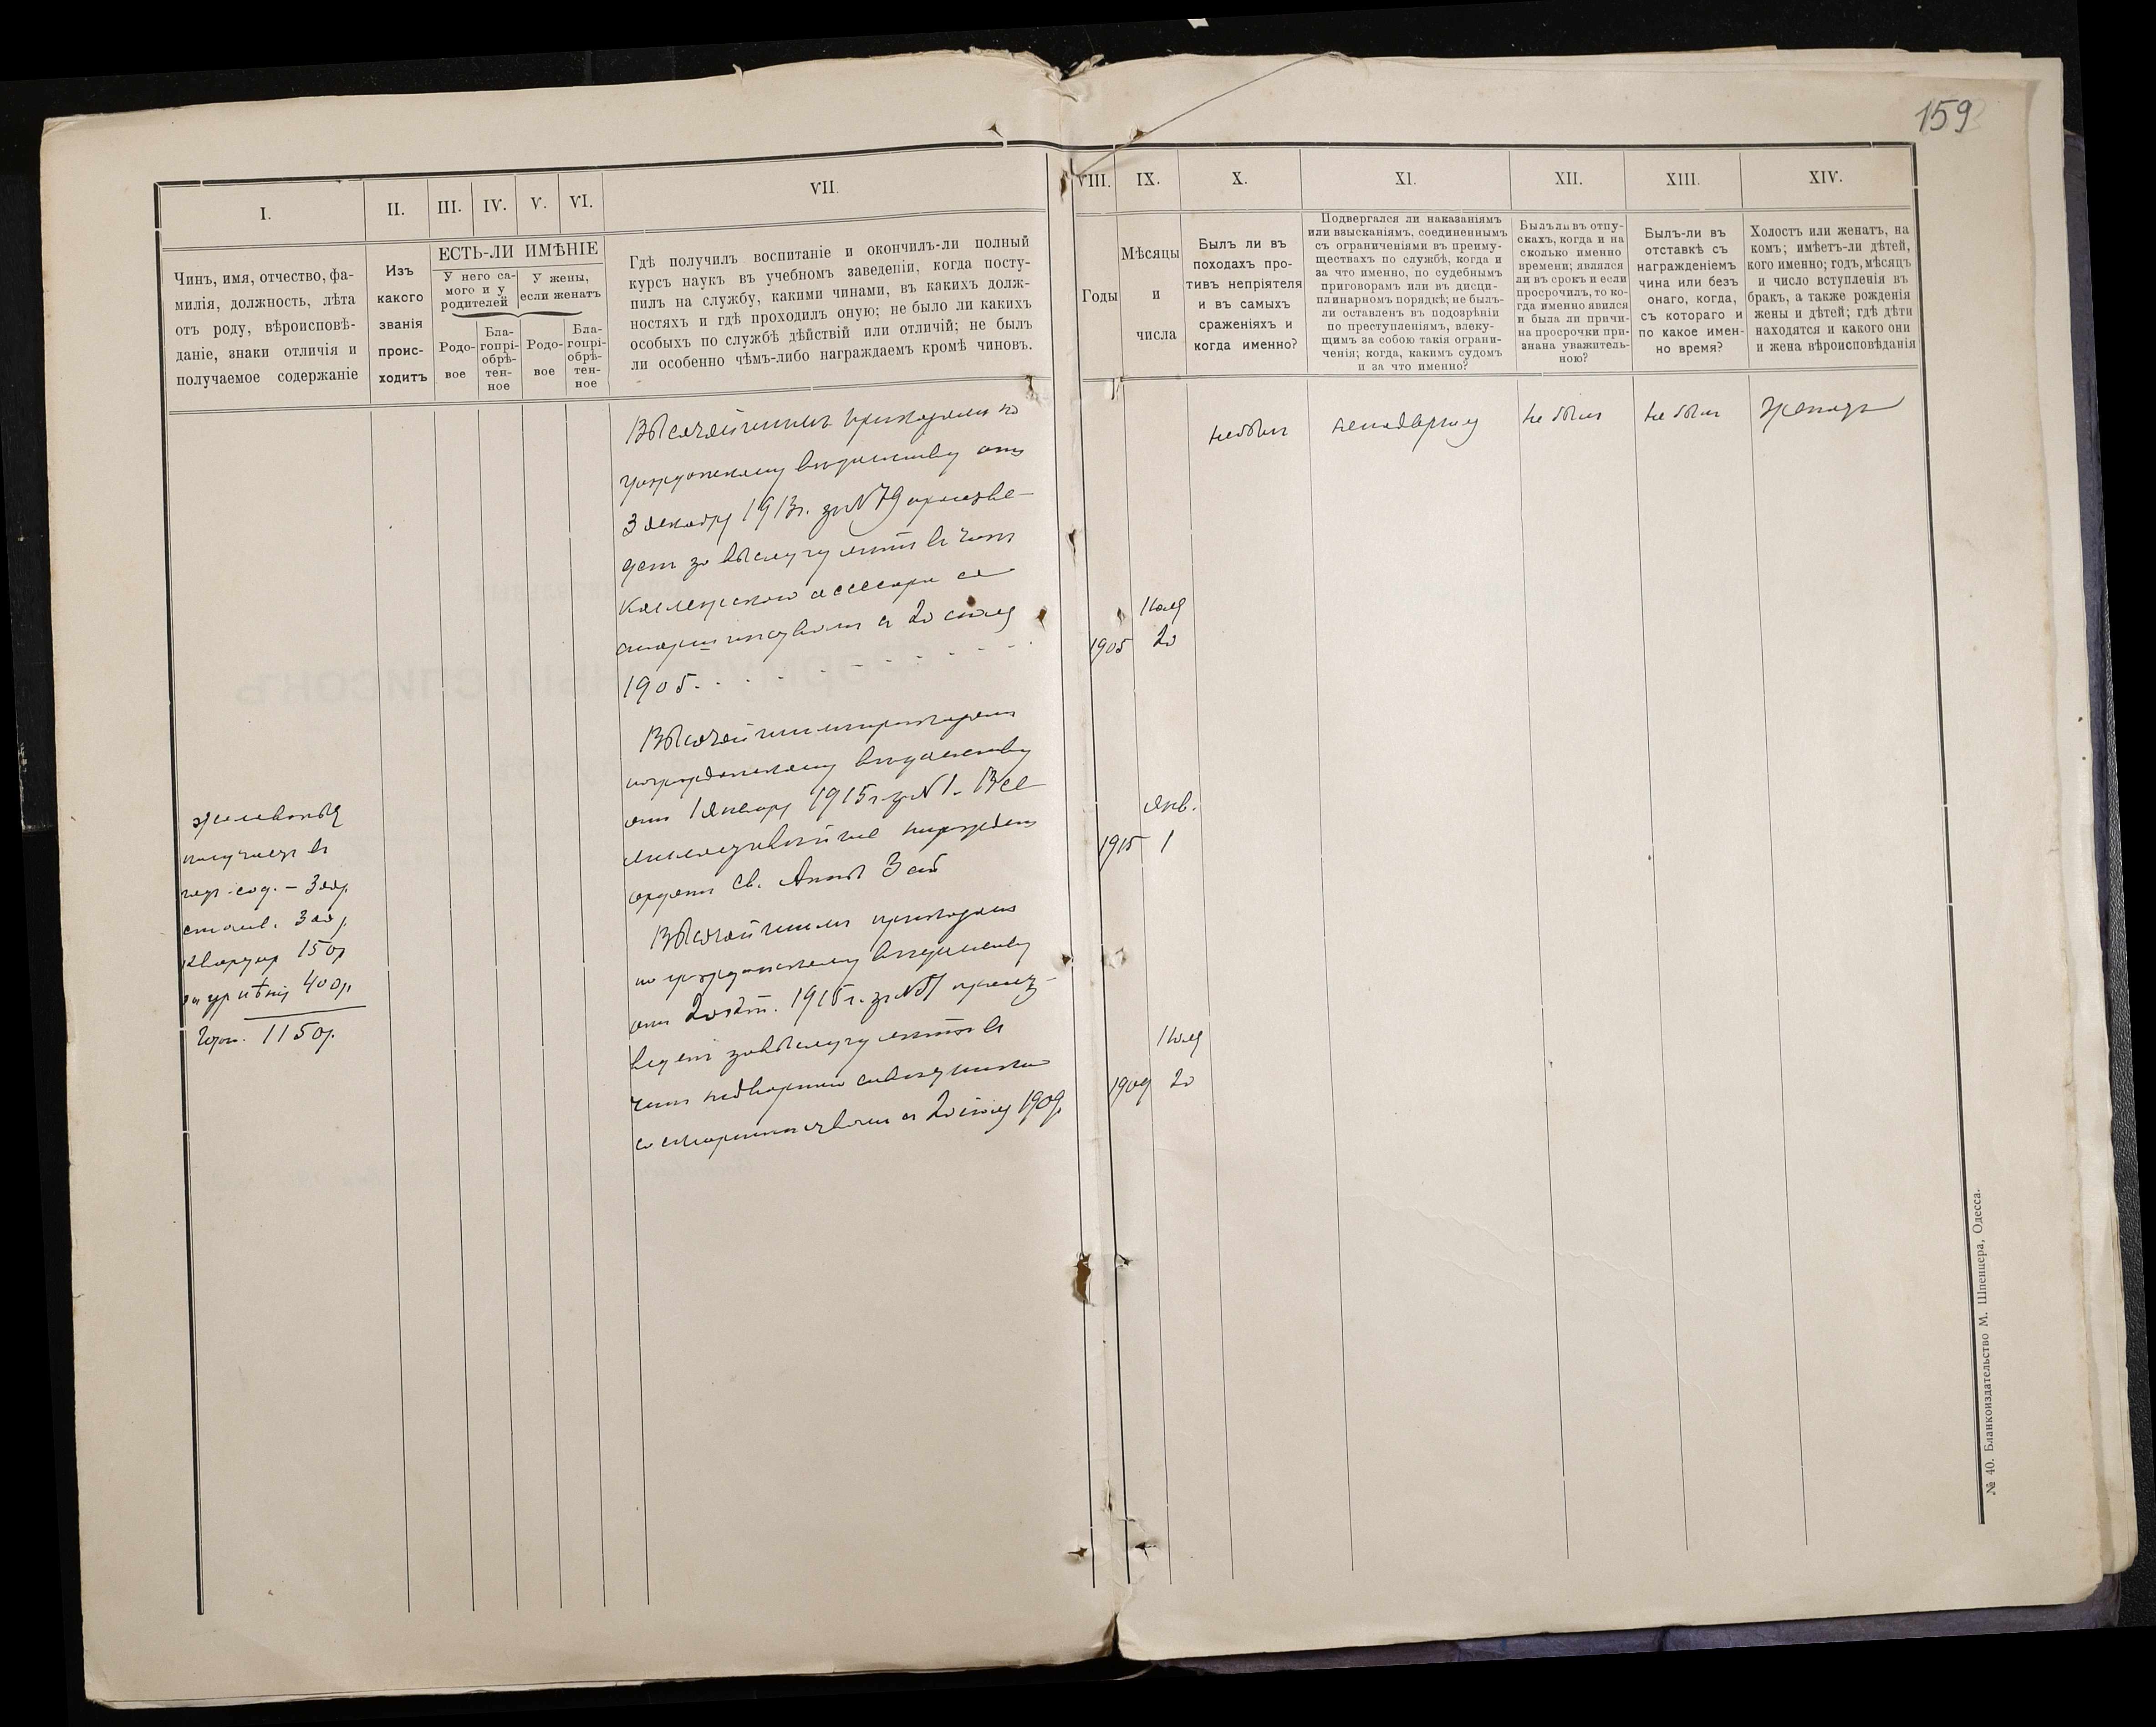 159
I.
II.
III.
IV.
V.
VI.
VII.
Чинъ, имя, отчество, фа-
милія, должность, лѣта
отъ роду, вѣроисповѣ-
даніе, знаки отличія и
получаемое содержаніе
Изъ
какого
званія
проис-
ходитъ
ЕСТЬ-ЛИ ИМѢНІЕ
У него са-
мого и у
родителей
У жены,
если женатъ
Родо-
вое
Бла-
гопрі-
обрѣ-
тен-
ное
Родо-
вое
Бла-
гопрі-
обрѣ-
тен-
ное
Гдѣ получилъ воспитаніе и окончилъ-ли полный
курсъ наукъ въ учебномъ заведеніи, когда посту-
пилъ на службу, какими чинами, въ какихъ долж-
ностяхъ и гдѣ проходилъ оную; не было ли какихъ
особыхъ по службѣ дѣйствій или отличій; не былъ
ли особенно чѣмъ-либо награждаемъ кромѣ чиновъ.
VIII.
IX.
X.
XI.
XII.
XIII.
XIV.
Годы
Мѣсяцы
и
числа
Былъ ли въ
походахъ про-
тивъ непріятеля
и въ самыхъ
сраженіяхъ и
когда именно?
Подвергался ли наказаніямъ
или взысканіямъ, соединеннымъ
съ ограниченіями въ преиму-
ществахъ по службѣ, когда и
за что именно, по судебнымъ
приговорамъ или въ дисци-
плинарномъ порядкѣ; не былъ-
ли оставленъ въ подозрѣніи
по преступленіямъ, влеку-
щимъ за собою такія ограни-
ченія; когда, какимъ судомъ
и за что именно?
Былъ ли въ отпу-
скахъ, когда и на
сколько именно
времени; являлся
ли въ срокъ и если
просрочилъ, то ко-
гда именно явился
и была ли причи-
на просрочки при-
знана уважитель-
ною?
Былъ-ли въ
отставкѣ съ
награжденіемъ
чина или безъ
онаго, когда,
съ котораго и
по какое имен-
но время?
Холостъ или женатъ, на
комъ; имѣетъ-ли дѣтей,
кого именно; годъ, мѣсяцъ
и число вступленія въ
бракъ, а также рожденія
жены и дѣтей; гдѣ дѣти
находятся и какого они
и жена вѣроисповѣданія
Высочайшимъ приказомъ по
гражданскому вѣдомству отъ
3 декабря 1913 г. за № 79 произве-
денъ за выслугу лѣтъ въ чинъ
Коллежскаго ассесора со
старшинствомъ съ 20 іюля
1905.
Высочайшимъ приказомъ
по гражданскому вѣдомству
отъ 1 января 1915 г. за № 1. Все
милостивѣйше награжденъ
орденомъ Св. Анны 3 ст
Высочайшимъ приказомъ
по гражданскому вѣдомству
отъ 20 окт. 1915 г. за № 51 произ-
веденъ за выслугу лѣтъ въ
чинъ надворнаго совѣтника
со старшинствомъ съ 20 іюля 1909
Жалованья
получаетъ въ
годъ сод. - 300 р.
столов. 300 р.
квартир 150 р
400 р.
Итого. 1150 р.
1905
Іюля
20
1915
Янв.
1
1909
Іюля
20
не былъ
не подвергался
не былъ
не былъ
Женатъ
№ 40. Бланкоиздательство М. Шпенцера, Одесса.